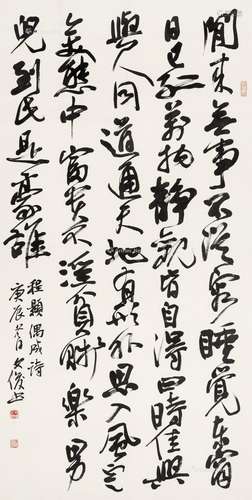 閒来無事不從容睡覺东窗
日已紅萬物靜觀皆自得四時佳興
與人同道通天地有形外思入風雲
變態中富貴不淫貧賤樂男
兒到此是豪雄
程顥偶成詩
庚辰 月文俊书